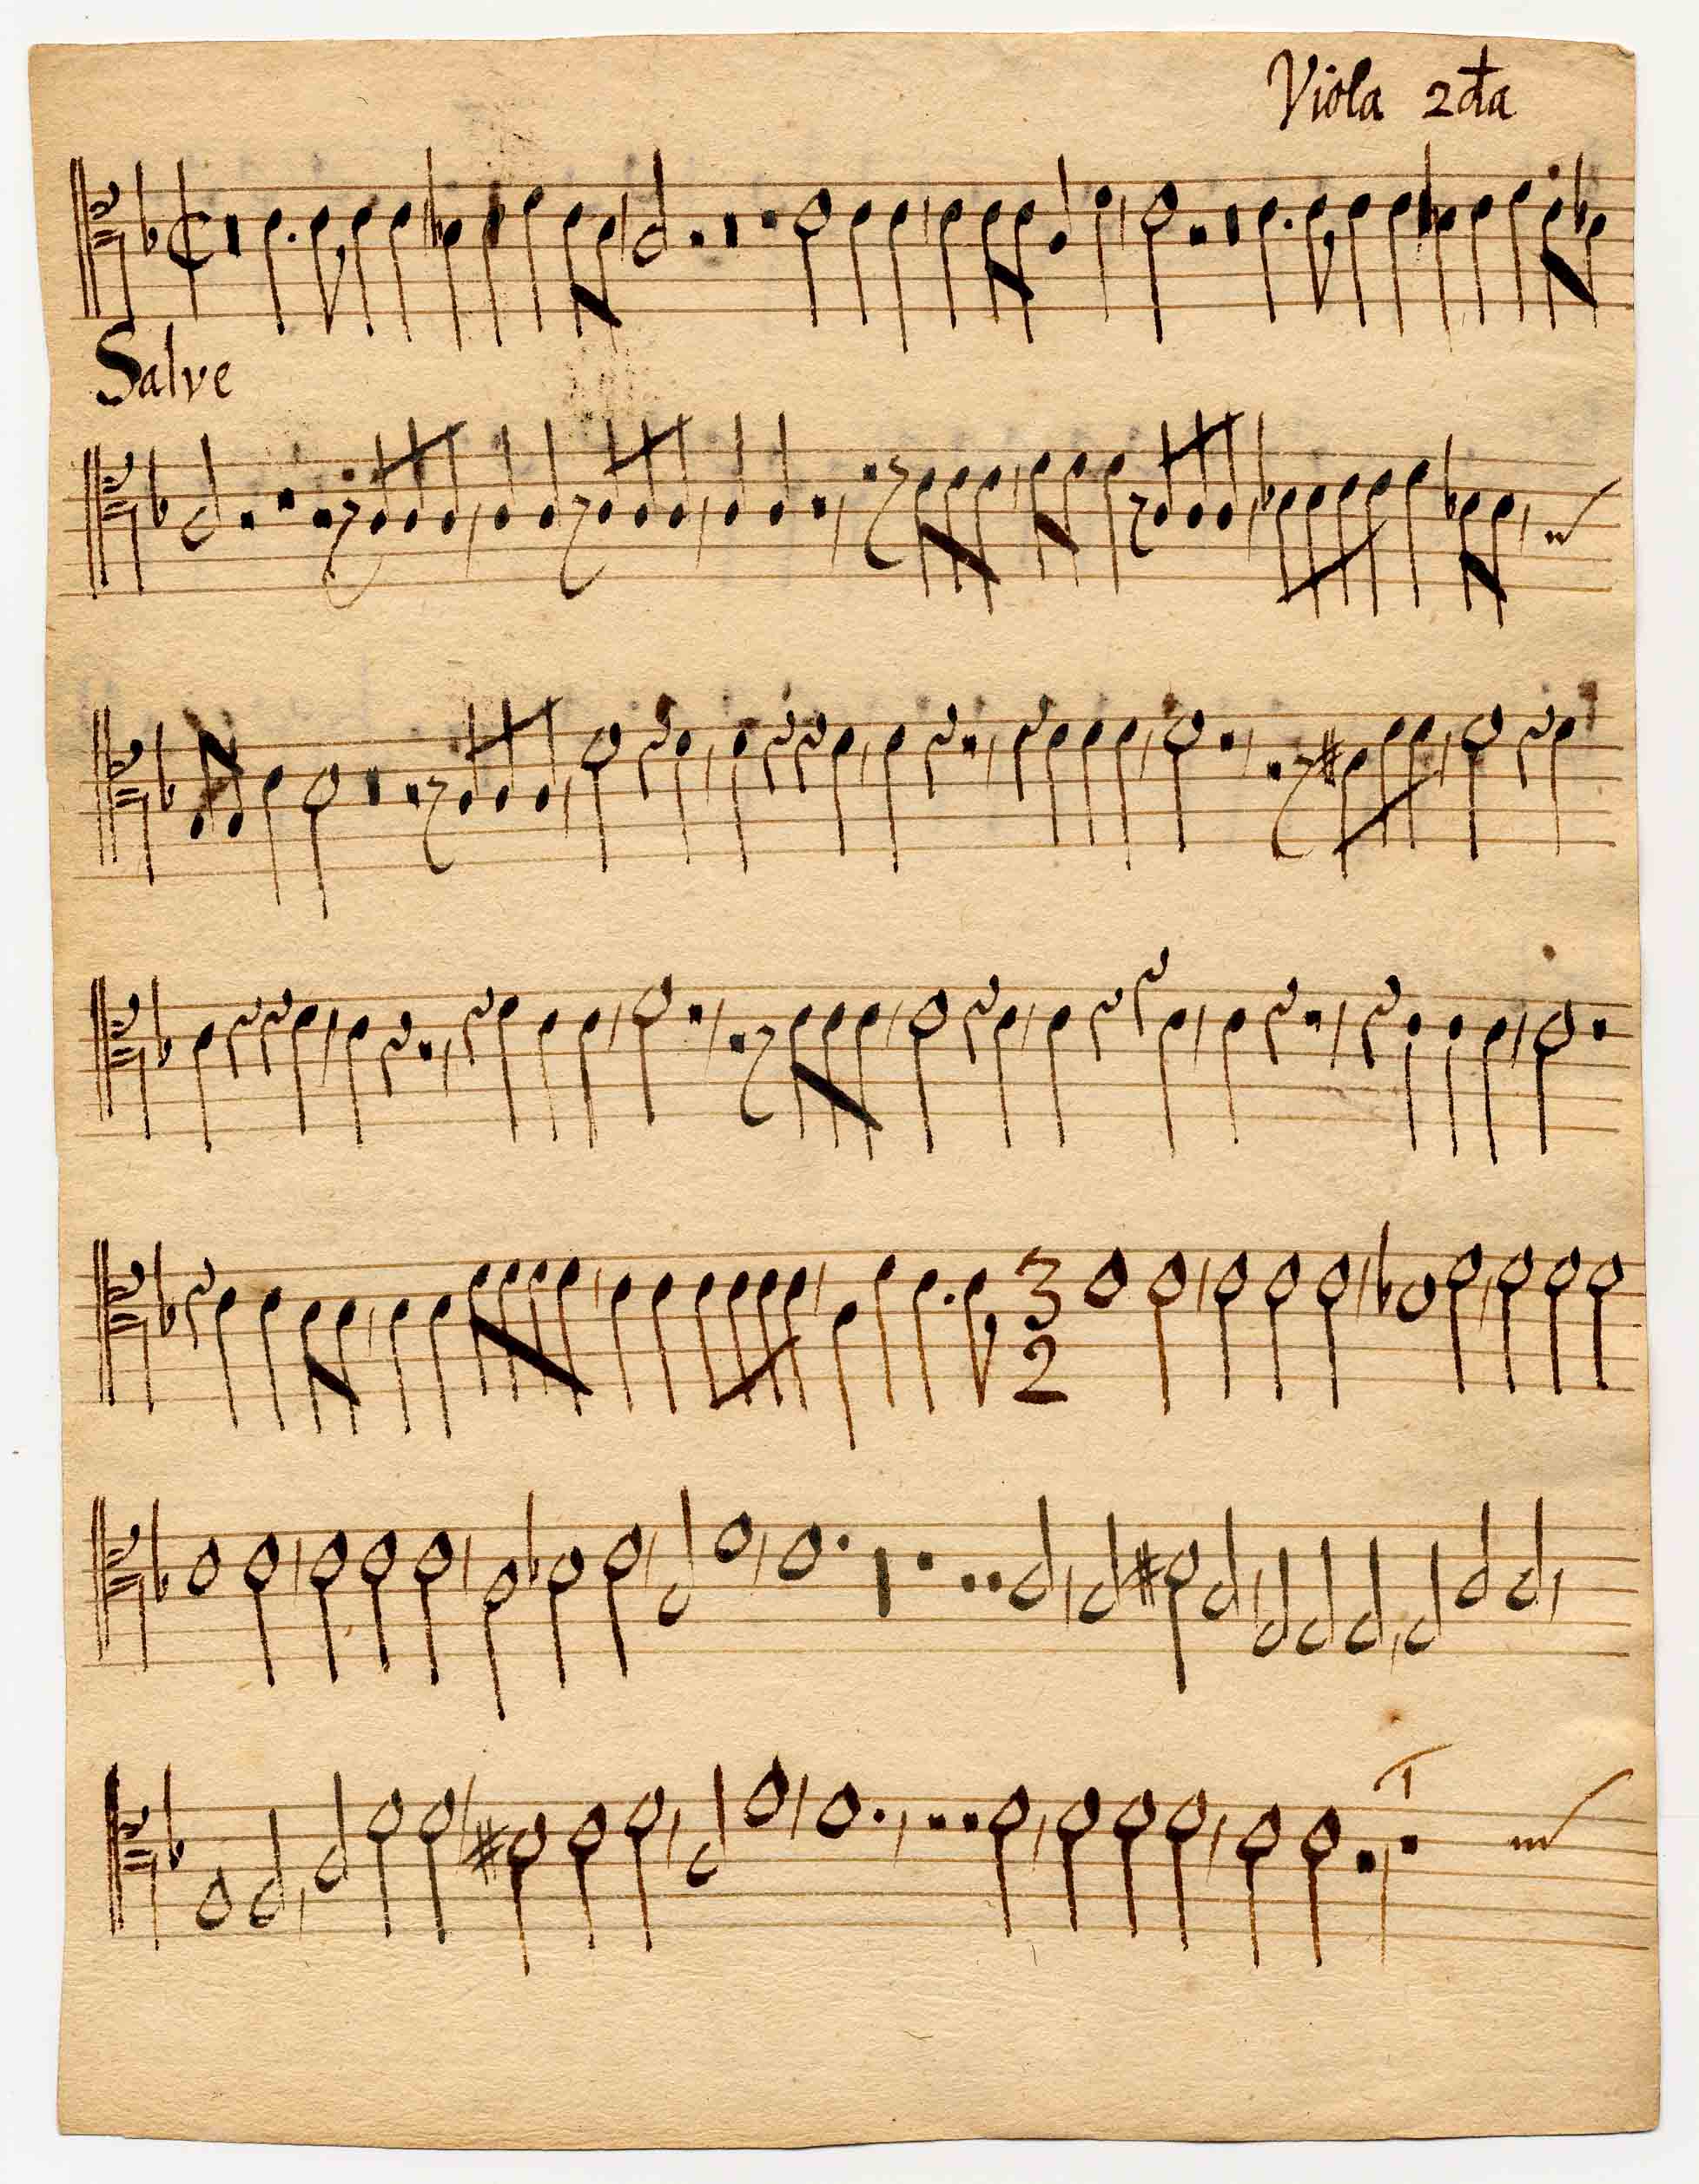 Viola 2da
Salve
3
2